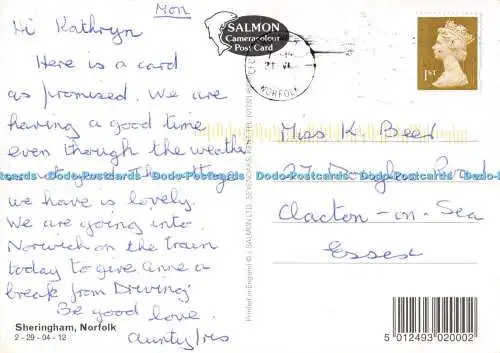 Mon
Hi Kathryn
Here is a card
as promised. We are
having a good time
even though the weather
The cottage
we have is lovely.
We are going into
Norwich on the train
today to give Anne a
break from Driving
Be good love.
Aunty Iris
Sheringham, Norfolk
2 - 29 - 04 - 12
SALMON
Cameracolour
Post Card
NORFOLK
1ST
Miss K Beer
27 Douglas Road
Clacton-on-Sea
Essex
Printed in England © J. SALMON LTD., SEVENOAKS, KENT
Dodo-Postcards Dodo-Postcards Dodo-Postcards Dodo-Postcards Dodo-Postcards Dodo-Postcards
5 012493 020002